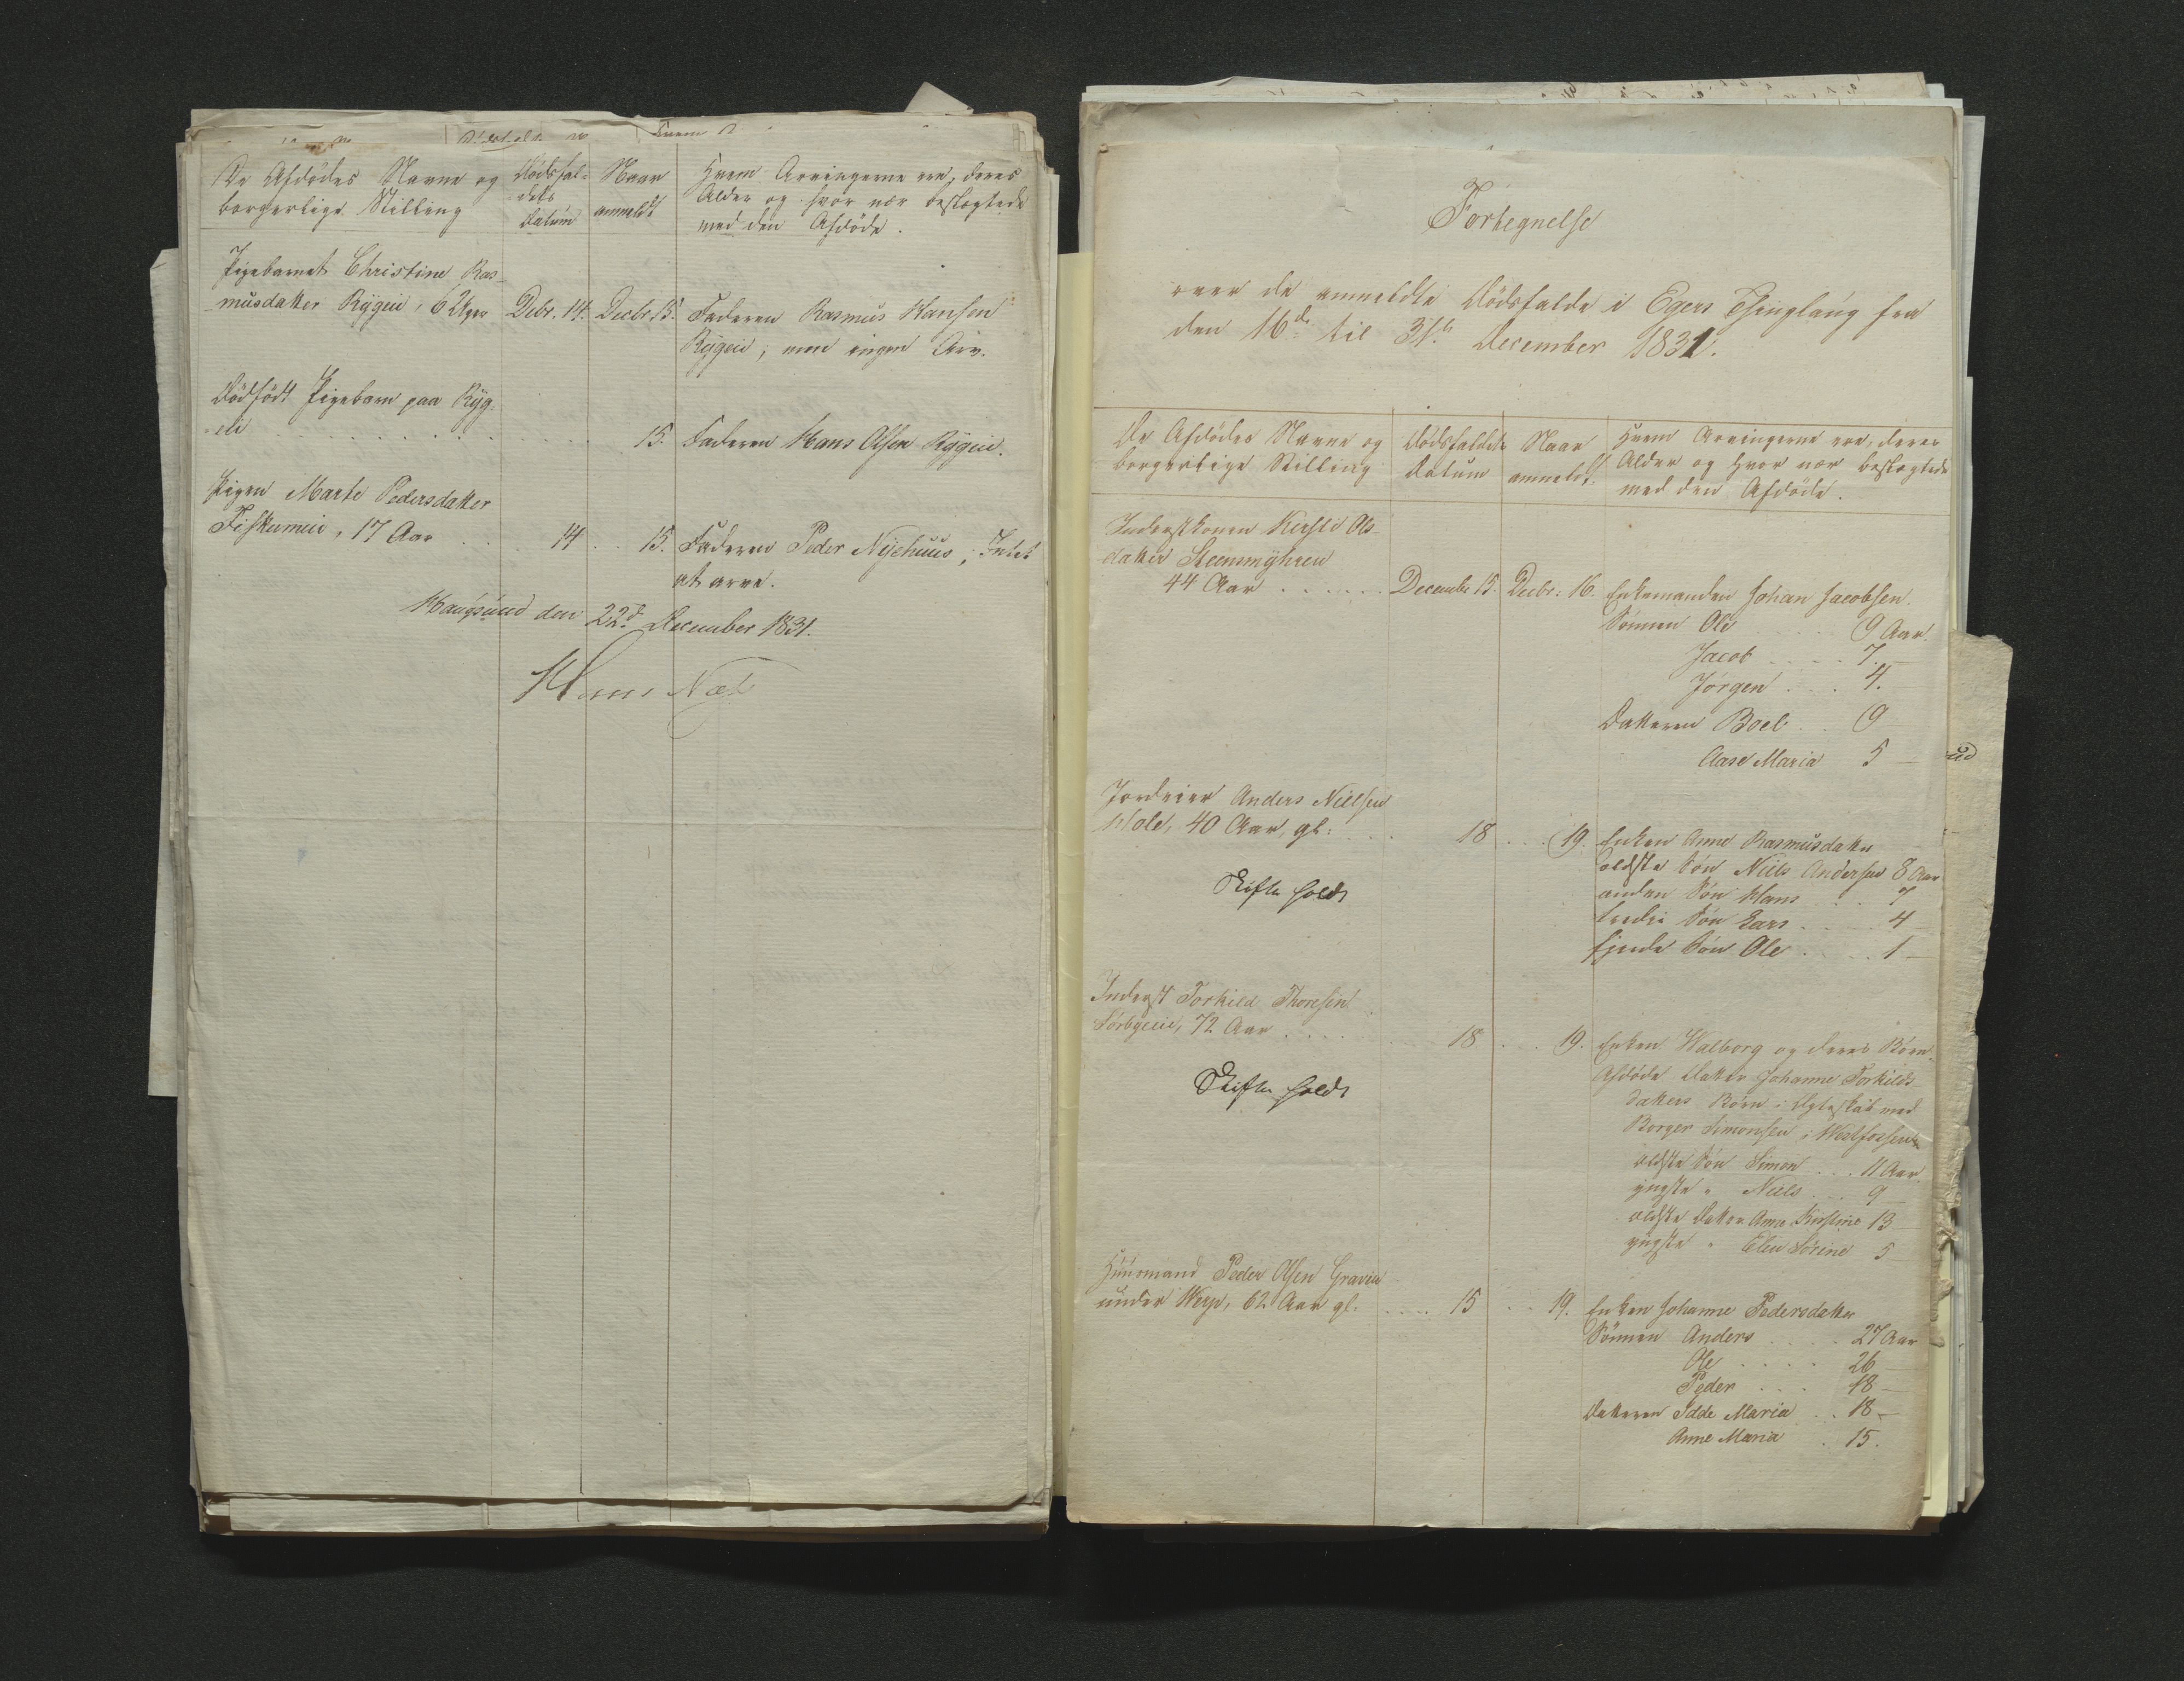 De Afdødes Navne og
borgerlige Stilling
Dødsfal-
dets
Datum
Naar
anmeldt
Hvem Arvingerne ere, deres
Alder og hvor nær beslægtede
med den Afdøde.
Pigebarnet Christine Ras-
musdatter Rygeie, 6 Uger Debr. 14. Decbr. 15. Faderen Rasmus Hansen
Rygeie, men ingen Arv.
Dødfødt Pigebarn paa Ryg-
eie . . . 15. Faderen Hans Olsen Rygeie.
Pigen Marte Pedersdatter
Fiskumeie, 17 Aar . . . 14 . . 15. Faderen Peder Nyehuus, Intet
at arve.
Haugsund den 22d December 1831.
Hans
Fortegnelse
over de anmeldte Dødsfalde i Egers Thinglaug fra
den 16de til 31te December 1831.
De Afdødes Navne og
borgerlige Stilling
Dødsfaldets
Datum
Naar
anmeldt.
Hvem Arvingerne ere, deres
Alder og hvor nær beslægtede
med den Afdøde.
Inderstkonen Kirsti Ols-
datter Steenmyhren
44 Aar . . . . . . December 15. Decbr. 16. Enkemanden Johan Jacobsen.
Sønnen Ole . . . . 9 Aar.
Jacob . . . . 7. —
Jørgen . . . 4.
Datteren Boel . . 9
Aase Maria 5 —
Jordeier Anders Nielsen
Hole, 40 Aar gl. . . . 18 . . . 19. Enken Anne Rasmusdatter
ældste Søn Niels Andersen 8 Aar
anden Søn Hans . . . 7
tredie Søn Lars . . . . 4 —
fjerde Søn Ole . . . . 1 —
Skifte holdt
Inderst Torkild Thoresen
Sørbyeie, 72 Aar . . . . . 18 . . . 19. Enken Walborg og deres Børn.
Afdøde Datter Johanne Torkilds-
datters Børn i Ægteskab med
Borger Simonsen i Westfossen
ældste Søn Simon . . . 11 Aar.
yngste " Niels . . . 9 —
ældste Datter Anne Kirstine 13
yngste " Elen Sørine 5
Skifte holdt
Huusmand Peder Olsen Gravin
under Werp, 62 Aar gl. . . . . 15 . . . 19. Enken Johanne Pedersdatter
Sønnen Anders . . . . 27 Aar
Ole . . . . 26 —
Peder . . . 18 —
Datteren Idde Maria . . 18 —
Anne Maria . 15.